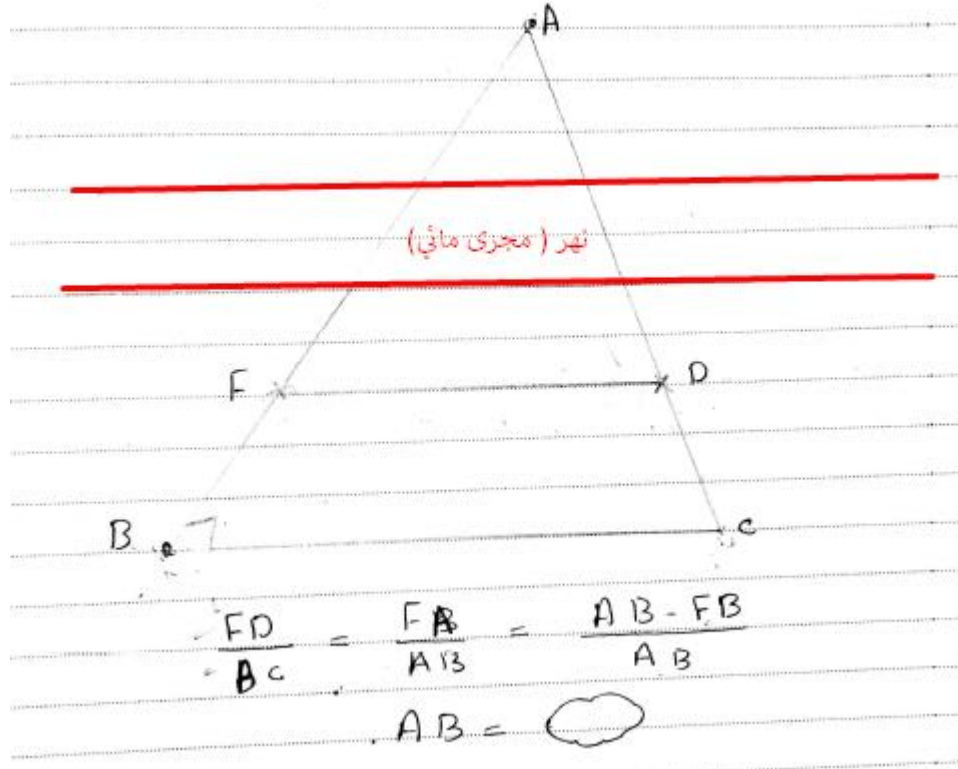 A
نهر ( مجرى مائي)
F D
B C
FD/BC = FA/AB = AB - FB/AB
AB =